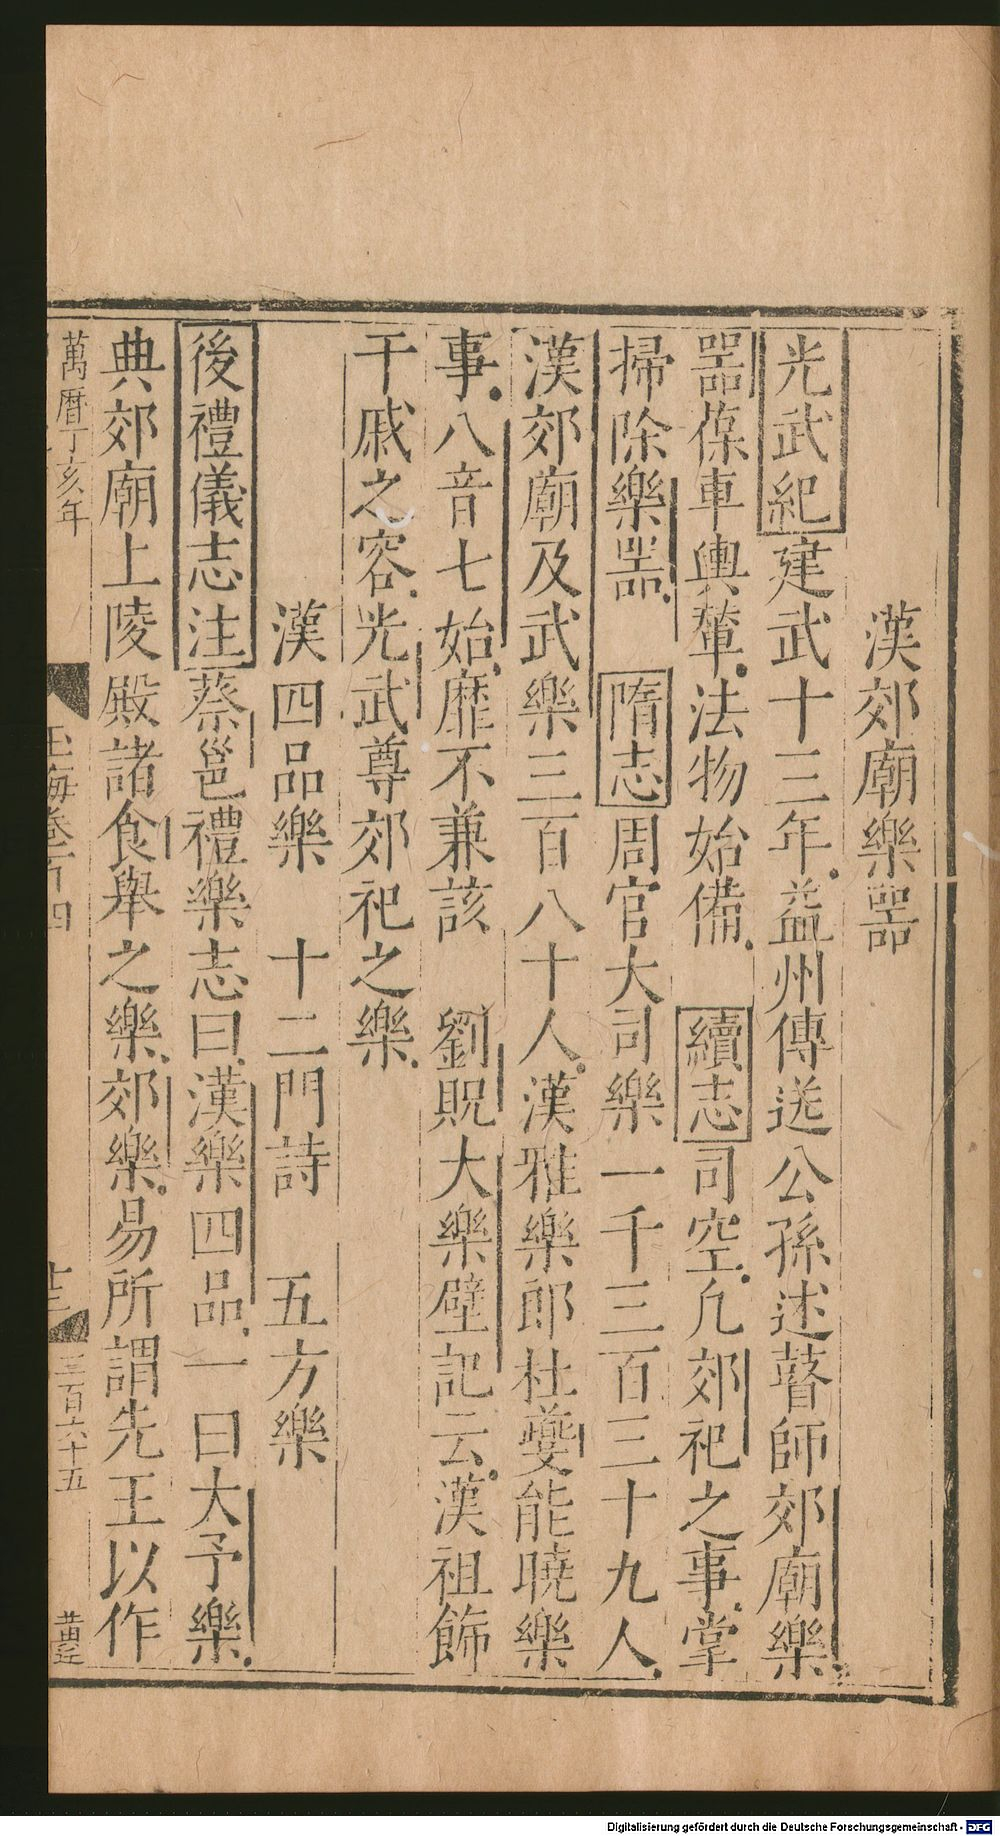 漢郊廟樂器
光武紀建武十三年益州傳送公孫述瞽師郊廟樂
器葆車輿輦法物始備　續志司空凡郊祀之事掌
掃除樂器　隋志周官大司樂一千三百三十九人
漢郊廟及武樂三百八十人漢雅樂郎杜夔能曉樂
事八音七始靡不兼該　劉貺大樂壁記云漢祖飾
干戚之容光武尊郊祀之樂
漢四品樂　十二門詩　五方樂
後禮儀志注蔡邕禮樂志曰漢樂四品一曰大予樂
典郊廟上陵殿諸食舉之樂郊樂易所謂先王以作
萬曆丁亥年　玉海卷百四　十三　三百六十五
Digitalisierung gefördert durch die Deutsche Forschungsgemeinschaft - DFG